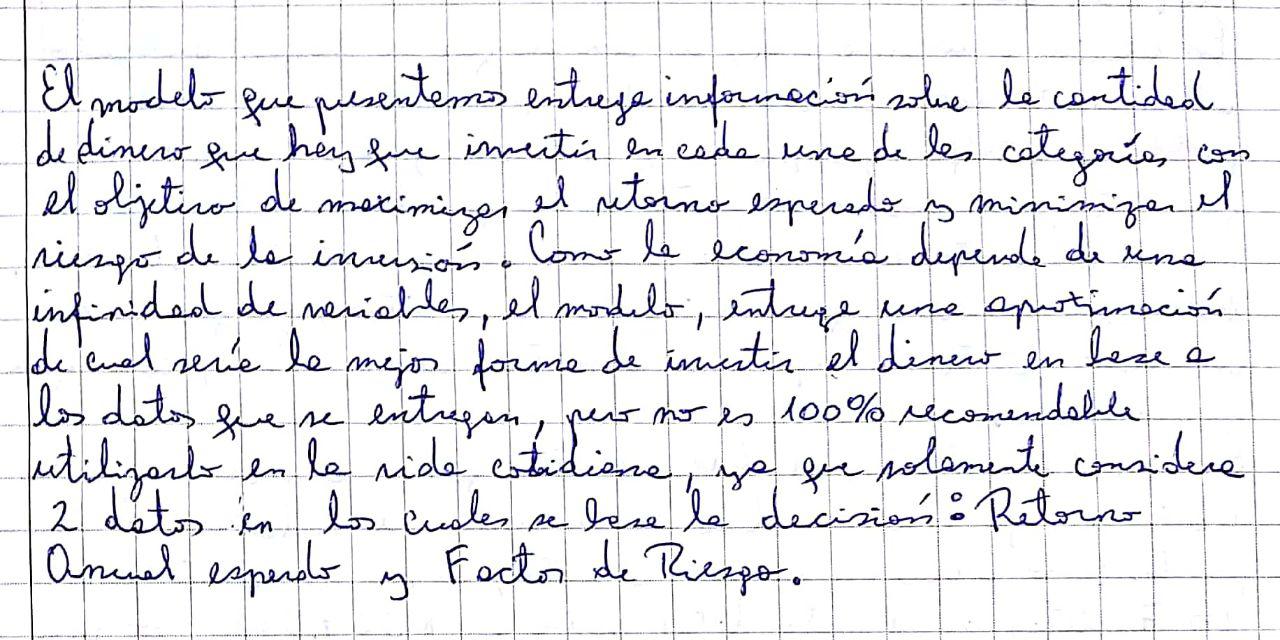 El modelo que presentamos entrega información sobre la cantidad
de dinero que hay que invertir en cada una de las categorías con
el objetivo de maximizar el retorno esperado y minimizar el
riesgo de la inversión. Como la economía depende de una
infinidad de variables, el modelo, entrega una aproximación
de cual sería la mejor forma de invertir el dinero en base a
los datos que se entregan, pero no es 100% recomendable
utilizarlo en la vida cotidiana, ya que solamente considera
2 datos en los cuales se basa la decisión: Retorno
Anual esperado y Factor de Riesgo.